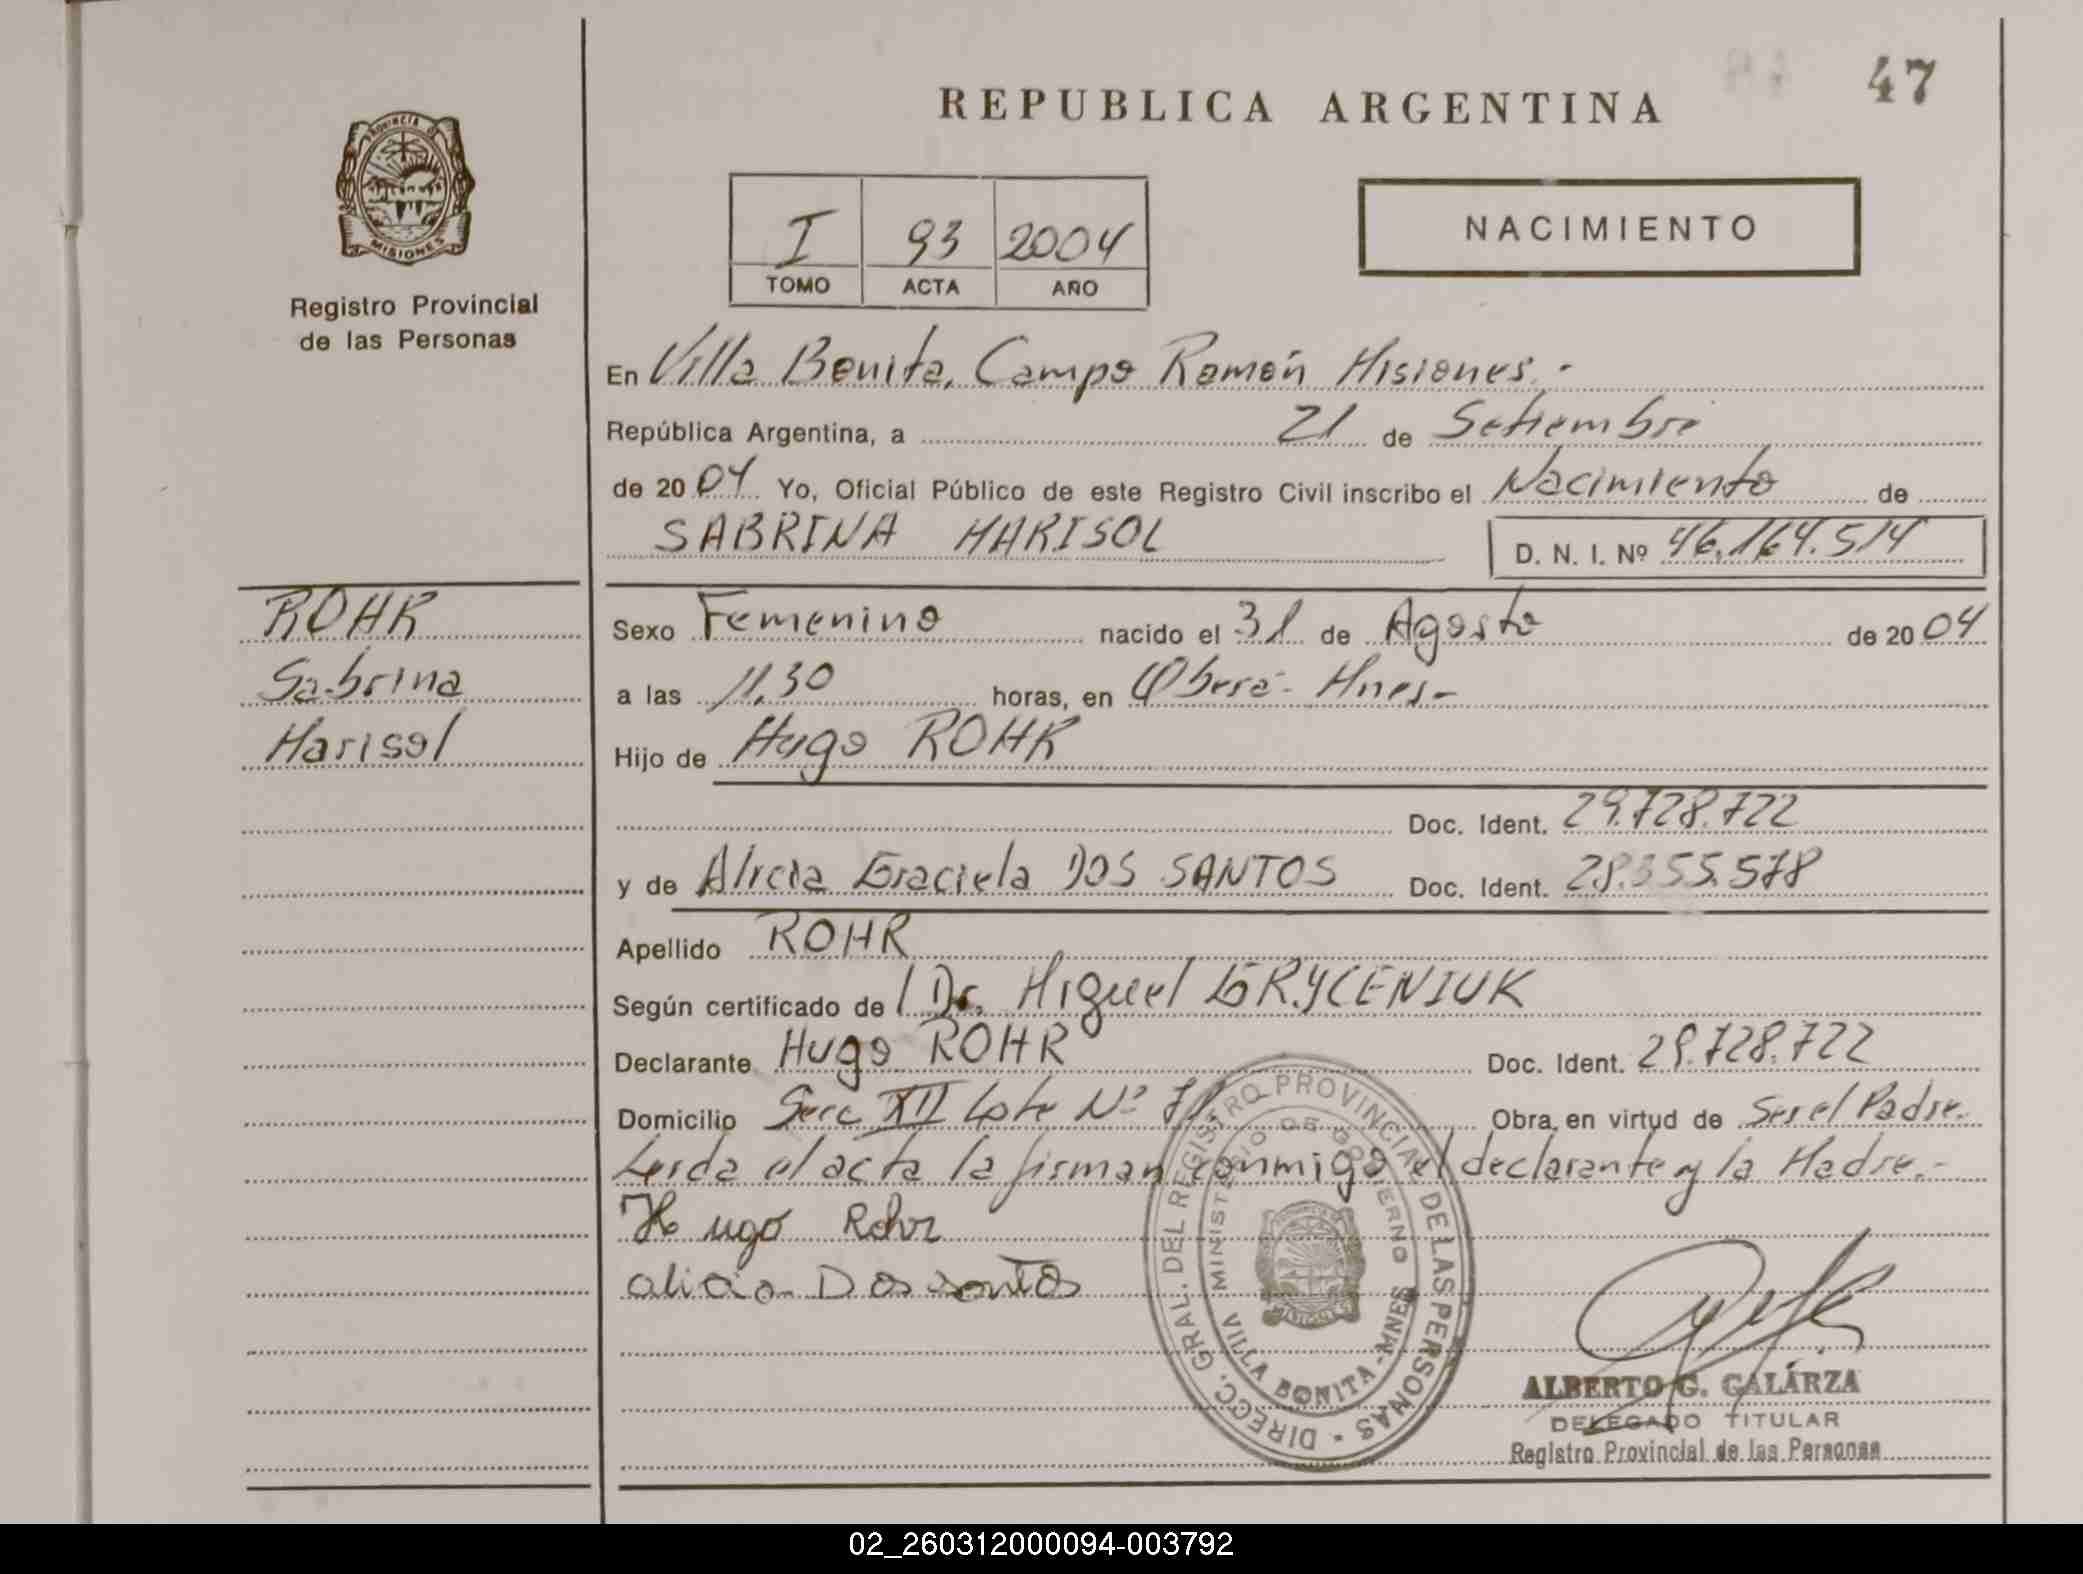 REPUBLICA ARGENTINA
47
PROVINCIA DE
MISIONES
Registro Provincial
de las Personas
I 93 2004
TOMO ACTA AÑO
NACIMIENTO
En Villa Bonita, Campo Ramón Misiones.-
República Argentina, a 21 de Setiembre
de 2004 Yo, Oficial Público de este Registro Civil inscribo el Nacimiento de
SABRINA MARISOL
D. N. I. Nº 46.164.514
ROHR
Sabrina
Marisol
Sexo Femenino nacido el 31 de Agosto de 2004
a las 11,30 horas, en Oberá- Mnes-
Hijo de Hugo ROHR
Doc. Ident. 29.728.722
y de Alicia Graciela DOS SANTOS Doc. Ident. 28.355.578
Apellido ROHR
Según certificado de Dr. Miguel GRYCENIUK
Declarante Hugo ROHR Doc. Ident. 29.728.722
Domicilio Secc XII Lote Nº 71 Obra, en virtud de Ser el Padre.
Leida el acta la firman conmigo el declarante y la Madre.-
Hugo Rohr
alicia Dos santos
DIRECC. GRAL. DEL REGISTRO PROVINCIAL DE LAS PERSONAS
MINISTERIO DE GOBIERNO
VILLA BONITA - MNES
ALBERTO G. GALÁRZA
DELEGADO TITULAR
Registro Provincial de las Personas
02_260312000094-003792